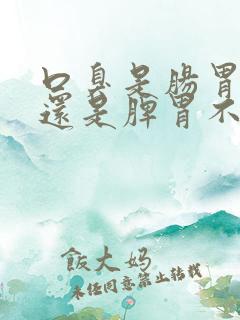 口臭是腸胃
還是脾胃不
飯大妈
未经同意禁止转载